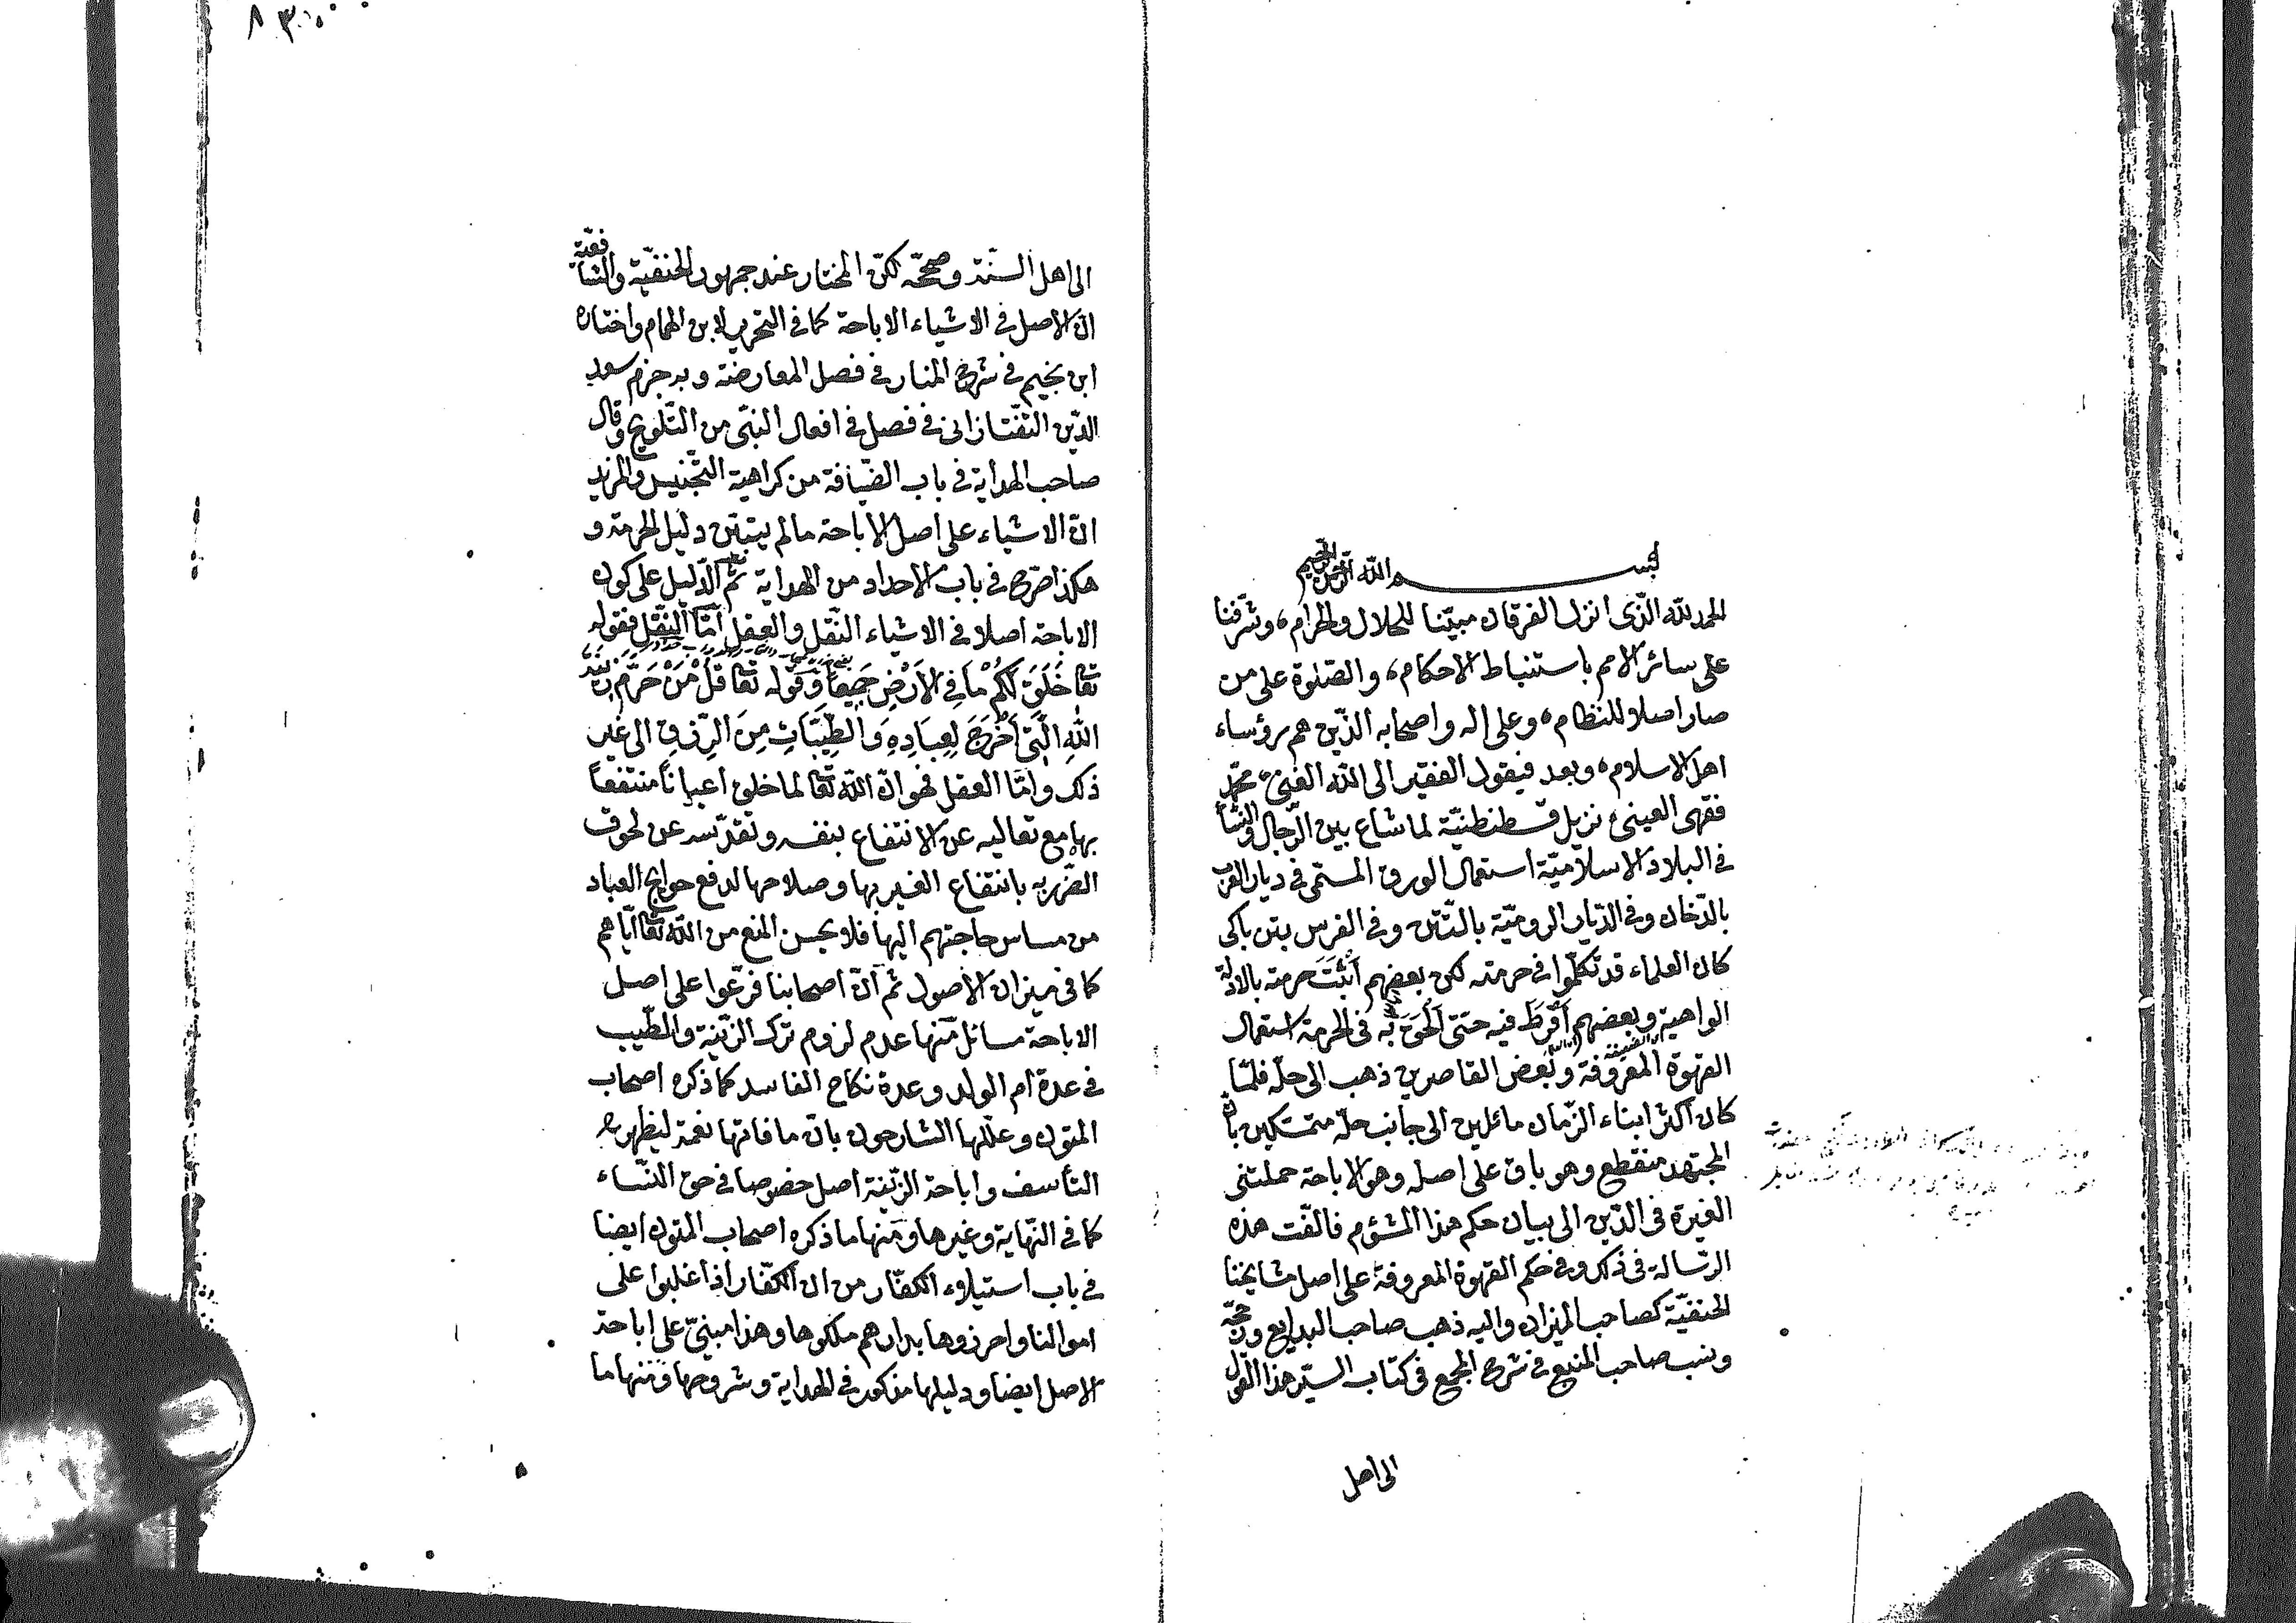 بسم الله الرحمن الرحيم
الحمد لله الذى انزل الفرقان مبيّنا للحلال والحرام، وشرّفنا
على سائر الامم باستنباط الاحكام، والصّلوة على من
صار اصلا للنظام، وعلى اله واصحابه الذّين هم رؤساء
اهل الاسلام، وبعد فيقول الفقير الى الله الغنىّ، محمّد
فقهى العينىّ، نزيل قسطنطنيّة لما شاع بين الرّجال والنّسا
فى البلاد الاسلاميّة استعمال الورق المسمّى فى ديار العرب
بالدّخان وفى الدّيار الروميّة بالتّتن وفى الفرس بتن باكى
كان العلماء قد تكلّموا فى حرمته لكن بعضهم أثبَتَ حرمته بالادلّة
الواهية وبعضهم أَفْرَطَ فيه حتى أَلْحَقَ به فى الحرمة استعمال
القهوة المعروفة وبعض القاصرين ذهب الى حلّه فلمّا
كان اكثر ابناء الزّمان مائلين الى جانب حلّه متمسّكين بانّ
المجتهد منقطع وهو باق على اصله وهو الاباحة حملتنى
الغيرة فى الدّين الى بيان حكم هذا المشؤم فالّفت هذه
الرّسالة فى ذلك وفى حكم القهوة المعروفة على اصل مشايخنا
الحنفيّة كصاحب الميزان واليه ذهب صاحب البدايع وصحّحه
ونسب صاحب المنبع فى شرح المجمع فى كتاب السيّر هذا القول
الى اهل
٨
الى اهل السّنّة وصحّحه لكنّ المختار عند جمهور الحنفيّة والشّافعيّة
انّ الاصل فى الاشياء الاباحة كما فى التحرير لابن الهمام واختاره
ابن نجيم فى شرح المنار فى فصل المعارضة وبه جزم سعد
الدّين التّفتازانى فى فصل فى افعال النبىّ من التّلويح وقال
صاحب الهداية فى باب الضّيافة من كراهية التّجنيس والمزيد
انّ الاشياء على اصل الاباحة ما لم يتبيّن دليل الحرمة و
هكذا صرّح فى باب الاحداد من الهداية ثمّ الدّليل على كون
الاباحة اصلا فى الاشياء النّقل والعقل امّا النّقل فقوله
تعا خَلَقَ لَكُمْ مَا فِى الأَرْضِ جَمِيعاً وقوله تعا قُلْ مَنْ حَرَّمَ زِينَةَ
اللّهِ الَّتِى أَخْرَجَ لِعِبَادِهِ وَالطَّيِّبَاتِ مِنَ الرِّزْقِ الى غير
ذلك وامّا العقل فهو انّ الله تعا لما خلق اعياناً منتفعاً
بها مع تعاليه عن الانتفاع بنفسه وتقدّسه عن لحوق
الضّرر به بانتفاع الغير بها وصلاحها لدفع حوايج العباد
من مساس حاجتهم اليها فلا يحسن المنع من الله تعا ايّاهم
كما فى ميزان الاصول ثم انّ اصحابنا فرّعوا على اصل
الاباحة مسائل منها عدم لزوم ترك الزّينة والطّيب
فى عدة ام الولد وعدة نكاح الفاسد كما ذكره اصحاب
المتون وعلّلها الشارحون بانّ ما فاتها نعمة ليظهر
التأسف واباحة الزّينة اصل خصوصا فى حق النّساء
كما فى النّهاية وغيرها ومنها ما ذكره اصحاب المتون ايضا
فى باب استيلاء الكفّار من ان الكفّار اذا غلبوا على
اموالنا واحرزوها بدارهم ملكوها وهذا مبنىّ على اباحة
الاصل ايضا ودليلها مذكور فى الهداية وشروحها ومنها ما